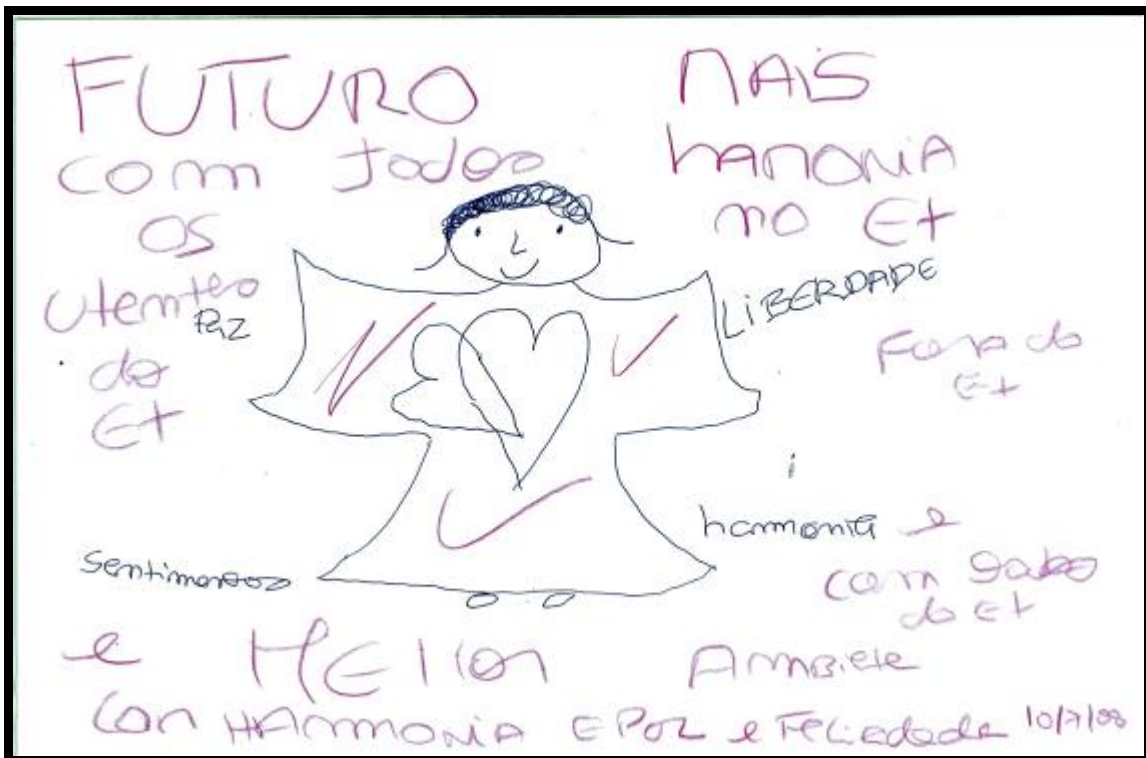 FUTURO
com todos
os
utentes
do
Et
NAIS
haMONIA
no Et
Paz
LIBERDADE
Fora do
Et
harmonia e
com
do Et
Sentimentos
e MElIor Ambiete
Con HArmoniA E Poz e Feliedade 10/7/08